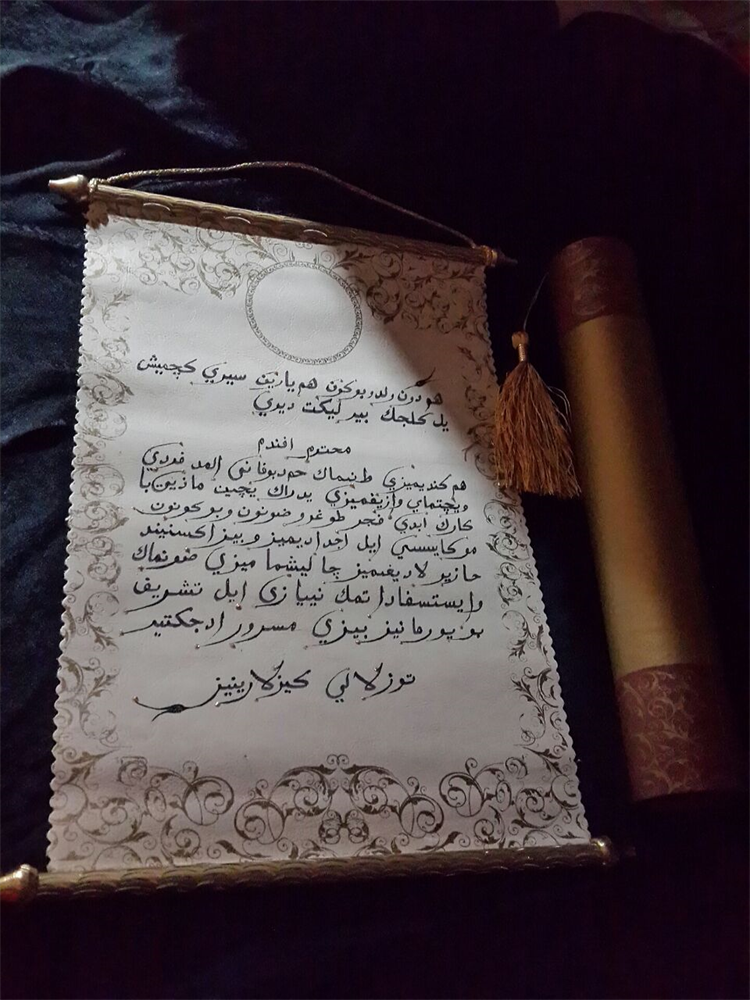 هم دون ولد و بو كون هم يارين سيري كچميش
يد كلجك بير ليكت ديري
محترم افندم
هم كنديميزي طنيماك حم
يچين ماذين با
كارك ابدي فجر طوغرو ضونون و بو كونون
موكايسسي ايل اجداديميز و بيز اكسنيند
حازير لاديغميز چاليشما ميزي ضونماك
وايستسفادا تمك نييازي ايل تشريف
بويورمانيز بيزي مسرور ادجكتير
توزلالي كيزلارينيز